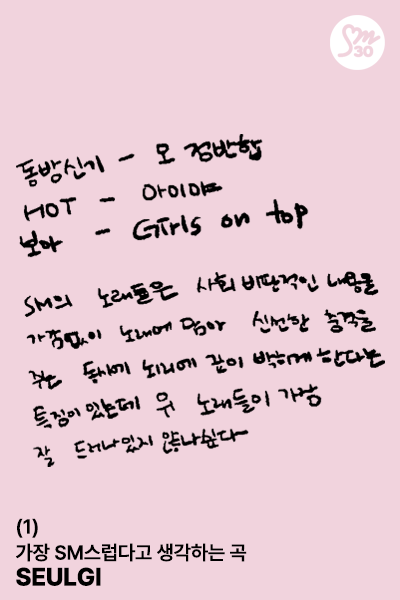 SM
30
동방신기 - 오 정반합
HOT - 아이야
보아 - Girls on top
SM의 노래들은 사회 비판적인 내용을
가감없이 노래에 담아 신선한 충격을
주는 동시에 뇌리에 깊이 박히게 한다는
특징이 있는데 위 노래들이 가장
잘 드러나있지 않나싶다
(1)
가장 SM스럽다고 생각하는 곡
SEULGI